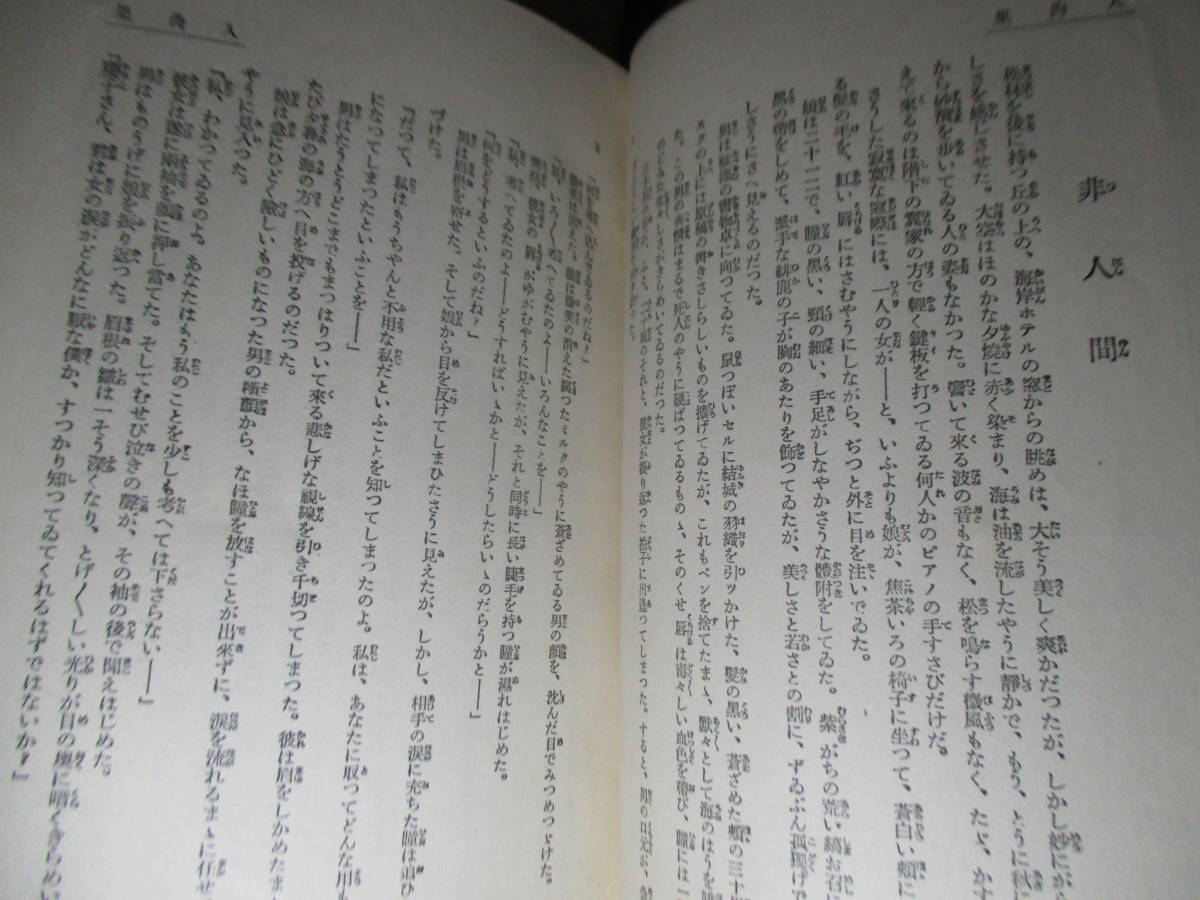 非人間
松林を後に持つ丘の上の、海岸ホテルの窓からの眺めは、大そう美しく爽かだつたが、しかし妙に
しさを感じさせた。大空はほのかな夕燒に赤く染まり、海は油を流したやうに靜かで、もう、とうに秋に
から砂濱を歩いてゐる人の姿もなかつた。響いて來る波の音もなく、松を鳴らす微風もなく、たゞ、かす
えて來るのは階下の翼家の方で輕く鍵板を打つてゐる何人かのピアノの手すさびだけだ。
さうした寂寞な窓際には、一人の女が――と、いふよりも娘が、焦茶いろの椅子に坐つて、蒼白い頬に
る髮の毛を、紅い唇にはさむやうにしながら、ぢつと外に目を注いでゐた。
娘は二十一二で、瞳の黒い、頸の細い、手足がしなやかさうな體附をしてゐた。紫がちの荒い縞お召に
黒の帶をしめて、派手な緋鹿の子が胸のあたりを飾つてゐたが、美しさと若さとの割に、ずゐぶん孤獨げで
しさうにさへ見えるのだつた。
男は書物卓に向つてゐた。鼠つぽいセルに結城の羽織を引ツかけた、髮の黒い、蒼ざめた頬の三十
スクの上には原稿の書きさしらしいものを擴げてゐたが、これもペンを捨てたまゝ、默々として海のはうを
た。この男の表情はまるで死人のやうに硬ばつてゐるものゝ、そのくせ唇は毒々しい血色を帶び、瞳には一
のじみた生々しさがきらめいてゐるのだつた。
彼女が振り返つた拍子に出逢つてしまつた。すると、男の
「何を考へ込んでゐるのだね？」
娘は微笑の消えた、ミルクのやうに蒼ざめてゐる男の顔を、沈んだ目でみつめつゞけた。
「私、いろ／＼考へてゐたのよ――いろんなことを――」
突然、彼女の唇がゆがむやうに見えたが、それと同時に長い睫毛を持つ瞳が濕れはじめた。
「私、考へてゐたのよ――どうすればいゝかと――どうしたらいゝのだらうかと――」
「何をどうするといふのだね？」
男は眉根を寄せた。そして娘から目を反けてしまひたさうに見えたが、しかし、相手の涙に充ちた瞳は追ひ
づけた。
「だつて、私はもうちやんと不用な私だといふことを知つてしまつたのよ。私は、あなたに取つてどんな用も
になつてしまつたといふことを――」
男はたうとうどこまでもまつはりついて來る悲しげな視線を引き千切つてしまつた。彼は眉をしかめたま
たび夕暮の海の方へ目を投げるのだつた。
娘は急にひどく險しいものになつた男の横顔から、なほ瞳を放すことが出來ずに、涙を流れるまゝに任せ
やうに見入つた。
「私、わかつてゐるのよ。あなたはもう私のことを少しも考へては下さらない――」
彼女は遂に兩袖を顔に押し當てた。そしてむせび泣きの聲が、その袖の後で聞えはじめた。
男はものうげに娘を振り返つた。眉根の皺は一そう深くなり、とげ／＼しい光りが目の奥に暗くきらめい
君は女の涙がどんなに厭な僕か、すつかり知つてゐてくれるはずではないか？」